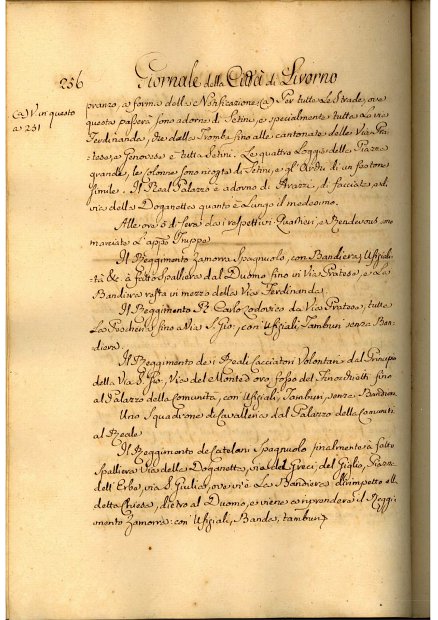 256 Giornale della Città di Livorno
(a) V. in questo
a 251
pranzo, a forma della Notificazione (a) Per tutte le Strade, ove
questa passerà sono adorne di Setini, e specialmente tutta la via
Ferdinanda, che dalla Tromba fino alle cantonate delle Vie Pra
tese, e Genovese è tutta Setini. Le quattro Loggie della Piazza
grande, le colonne sono rivolte di Setini, e gli Archi di un festone
simile. Il Real Palazzo è adorno di Arazzi, di facciata, e di
via della Doganetta quanto è lungo il medesimo.
Alle ore 5 di sera da i respettivi Quartieri, e Rendevous sono
marciate l'app. Truppe
Il Reggimento Zamora Spagnuolo, con Bandiera, Ufizia
tà &c. à fatto spalliera dal Duomo fino in Via Pratese, e la
Bandiera resta in mezzo della Via Ferdinanda.
Il Reggimento R. Carlo Lodovico da Via Pratese, tutta
La fino a Via S. Gio, con Ufiziali, Tamburi senza Ban
diera.
Il Reggimento de i Reali Cacciatori Volontari dal Principio
della Via S. Gio, Via del Monte d'oro, fosso del fino
al Palazzo della Comunità, con Ufiziali, Tamburi, senza Bandiera
Uno Squadrone di Cavalleria dal Palazzo della Comunità
al Reale
Il Reggimento de Catelani Spagnuolo finalmente à fatto
Spalliera Via della Doganetta, via dei Greci, del Giglio, Piazza
dell'Erbe, via S. Giulia, ove vi è La Bandiera dirimpetto alla
detta Chiesa, dietro al Duomo, e viene a riprendere il Reggi
mento Zamorra: con Ufiziali, Banda, tamburi